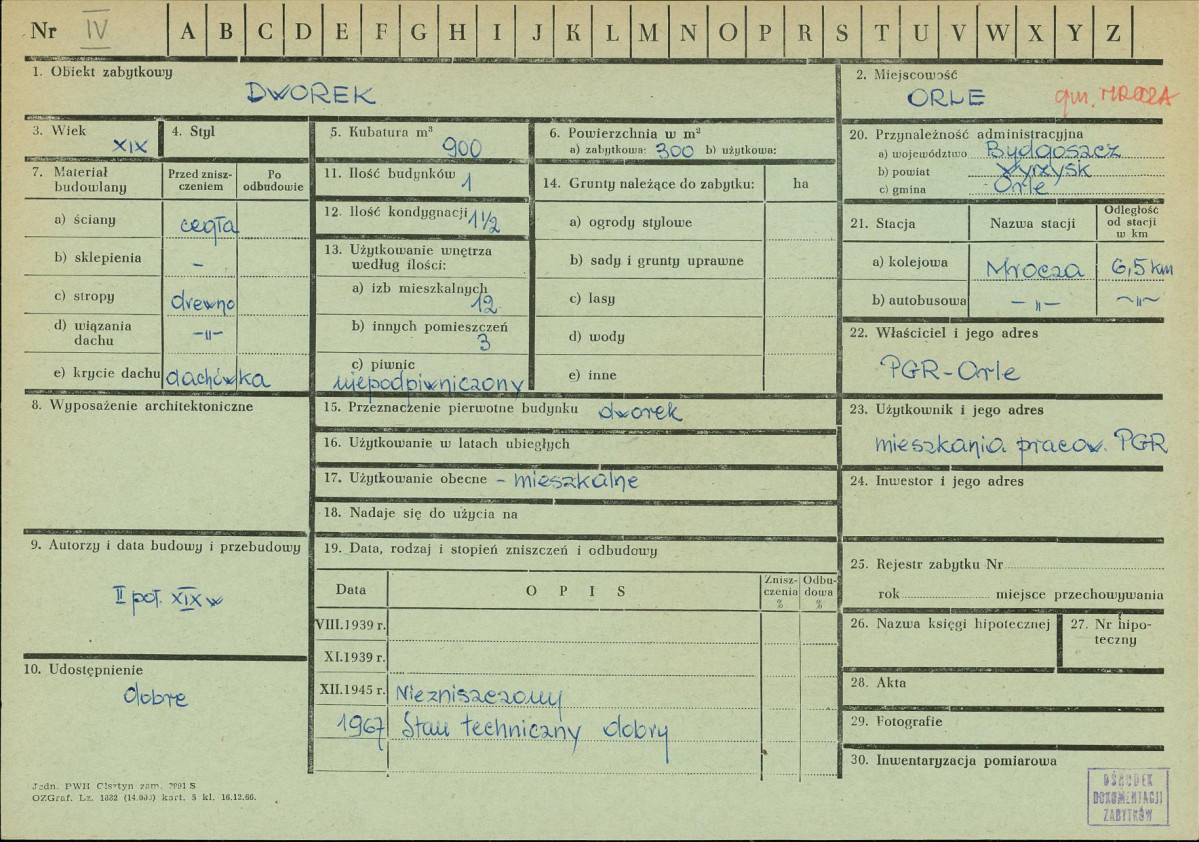 Nr IV A B C D E F G H I J K L M N O P R S T U V W X Y Z
1. Obiekt zabytkowy
DWOREK
2. Miejscowość
ORLE gm. MROCZA
3. Wiek
XIX
4. Styl
5. Kubatura m³
900
6. Powierzchnia w m²
a) zabytkowa: 300 b) użytkowa:
7. Materiał budowlany
Przed znisz-
czeniem
Po
odbudowie
a) ściany cegła
b) sklepienia -
c) stropy drewno
d) wiązania
dachu -"-
e) krycie dachu dachówka
8. Wyposażenie architektoniczne
9. Autorzy i data budowy i przebudowy
II poł. XIX w
10. Udostępnienie
dobre
11. Ilość budynków
1
12. Ilość kondygnacji 1 1/2
13. Użytkowanie wnętrza
według ilości:
a) izb mieszkalnych
12
b) innych pomieszczeń
3
c) piwnic
niepodpiwniczony
14. Grunty należące do zabytku: ha
a) ogrody stylowe
b) sady i grunty uprawne
c) lasy
d) wody
e) inne
15. Przeznaczenie pierwotne budynku dworek
16. Użytkowanie w latach ubiegłych
17. Użytkowanie obecne - mieszkalne
18. Nadaje się do użycia na
19. Data, rodzaj i stopień zniszczeń i odbudowy
Data OPIS
Znisz-
czenia
%
Odbu-
dowa
%
VIII.1939 r.
XI.1939 r.
XII.1945 r. Niezniszczony
1967 Stan techniczny dobry
20. Przynależność administracyjna
a) województwo Bydgoszcz
b) powiat Wyrzysk
c) gmina Orle
21. Stacja Nazwa stacji
Odległość
od stacji
w km
a) kolejowa Mrocza 6,5 km
b) autobusowa -"- -"-
22. Właściciel i jego adres
PGR-Orle
23. Użytkownik i jego adres
mieszkania pracow. PGR
24. Inwestor i jego adres
25. Rejestr zabytku Nr
rok miejsce przechowywania
26. Nazwa księgi hipotecznej
27. Nr hipo-
teczny
28. Akta
29. Fotografie
30. Inwentaryzacja pomiarowa
Jedn. PWH Olsztyn zam. 2091 S
OZGraf. Lz. 1882 (14.000) kart. 5 kl. 16.12.66.
OŚRODEK
DOKUMENTACJI
ZABYTKÓW